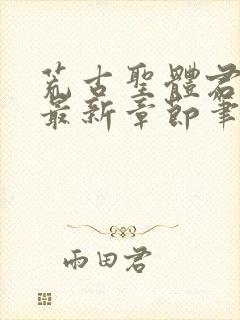 荒古聖體君
最新章節筆
雨田君